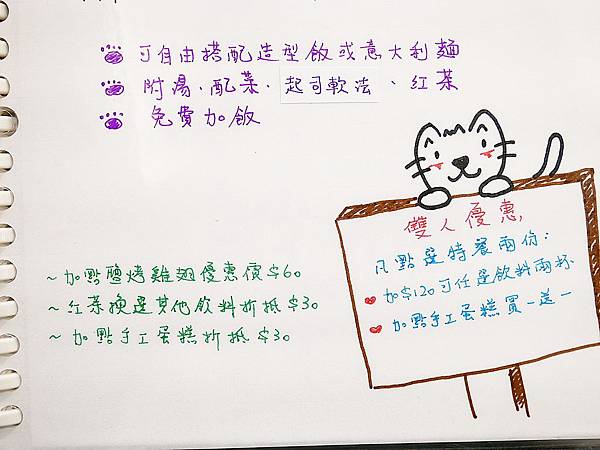 可自由搭配造型飯或意大利麵
附湯、配菜、起司軟法、紅茶
免費加飯
~加點鹽烤雞翅優惠價$60
~紅茶換選其他飲料折抵$30
~加點手工蛋糕折抵$30
雙人優惠
凡點選特餐兩份:
加$120可任選飲料兩杯
加點手工蛋糕買一送一